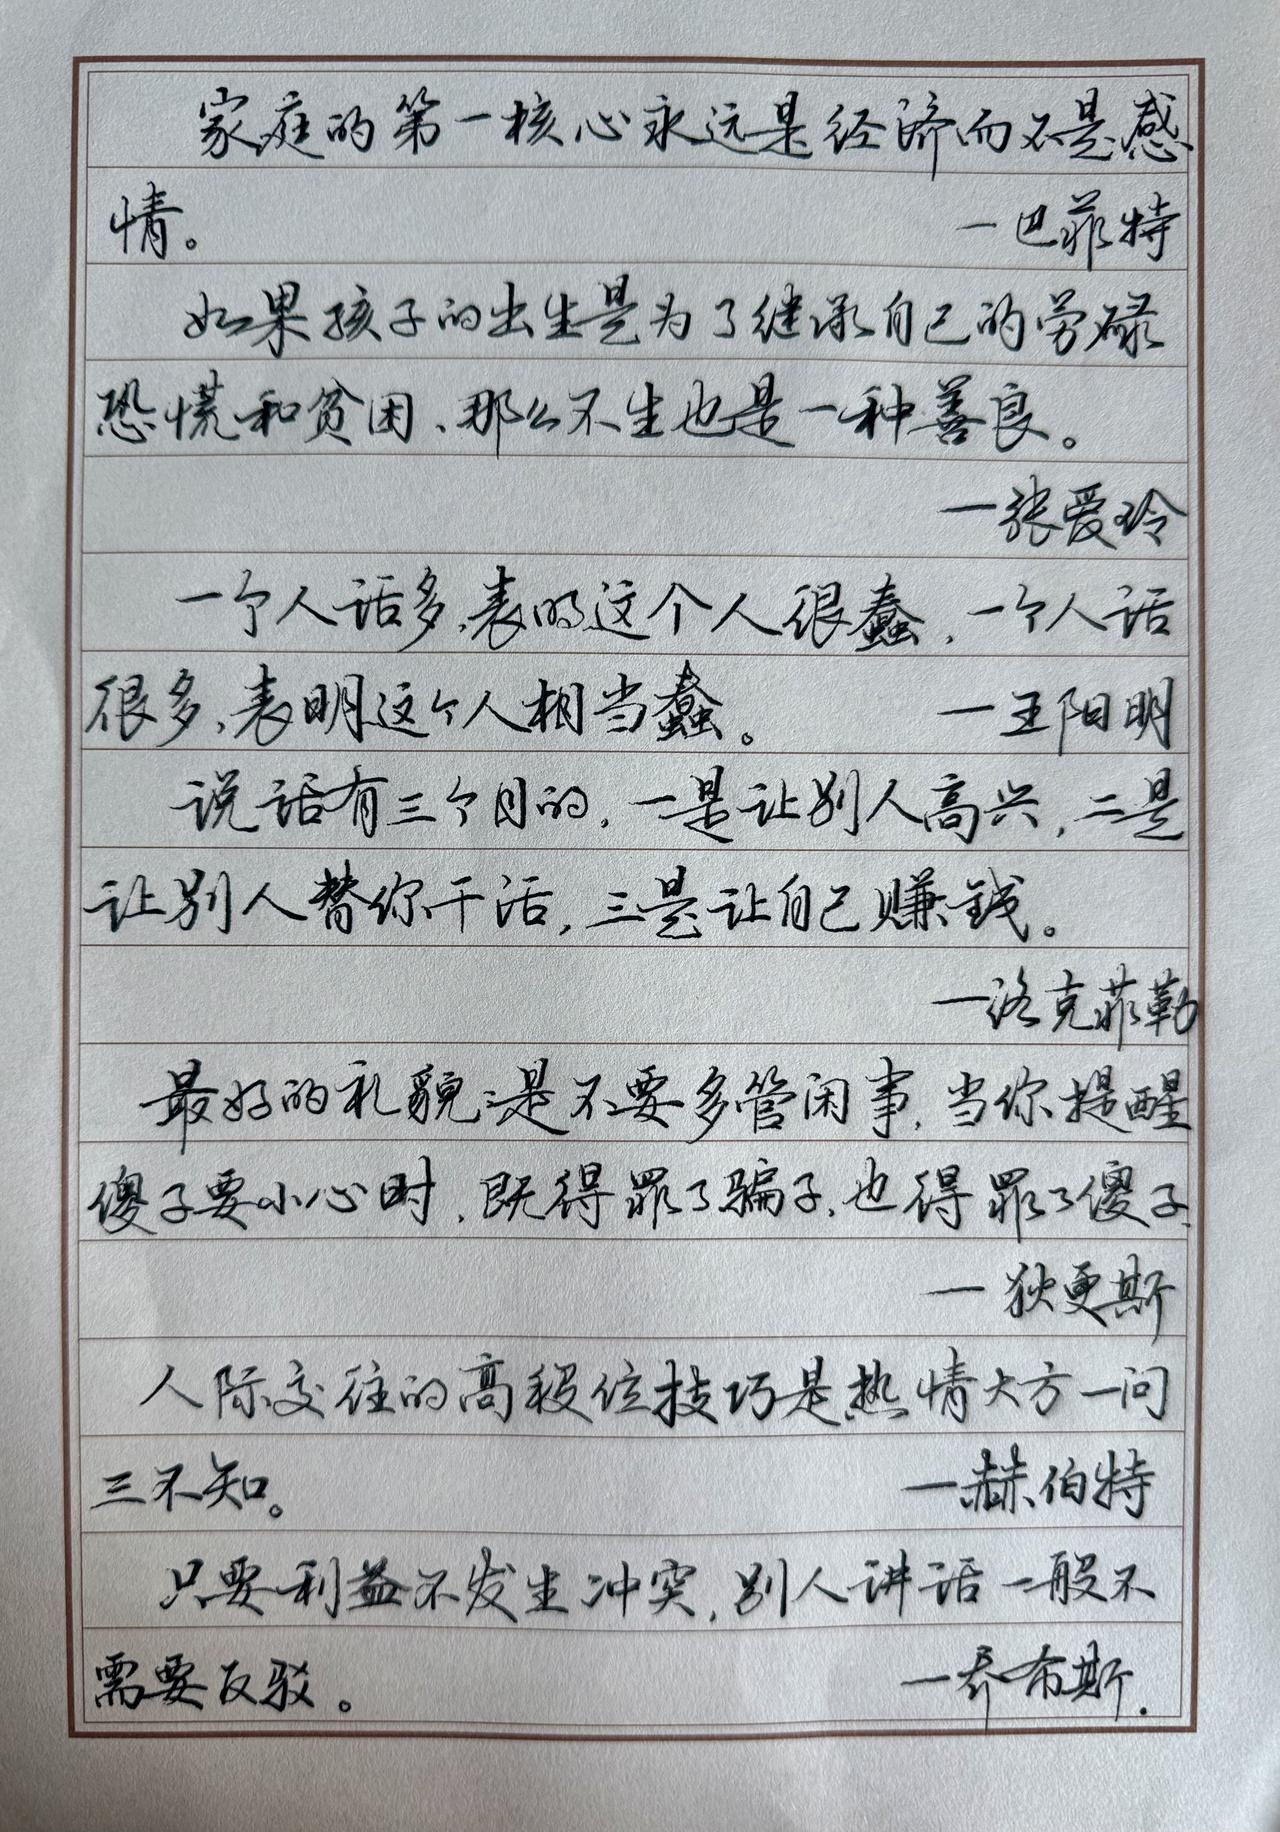 家庭的第一核心永远是经济而不是感
情。 一巴菲特
如果孩子的出生是为了继承自己的劳碌
恐慌和贫困、那么不生也是一种善良。
一张爱玲
一个人话多,表明这个人很蠢,一个人话
很多,表明这个人相当蠢。 一王阳明
说话有三个目的,一是让别人高兴,二是
让别人替你干活,三是让自己赚钱。
一洛克菲勒
最好的礼貌:是不要多管闲事,当你提醒
傻子要小心时,既得罪了骗子,也得罪了傻子.
一狄更斯
人际交往的高段位技巧是热情大方一问
三不知。 一赫伯特
只要利益不发生冲突,别人讲话一般不
需要反驳。 一乔布斯.